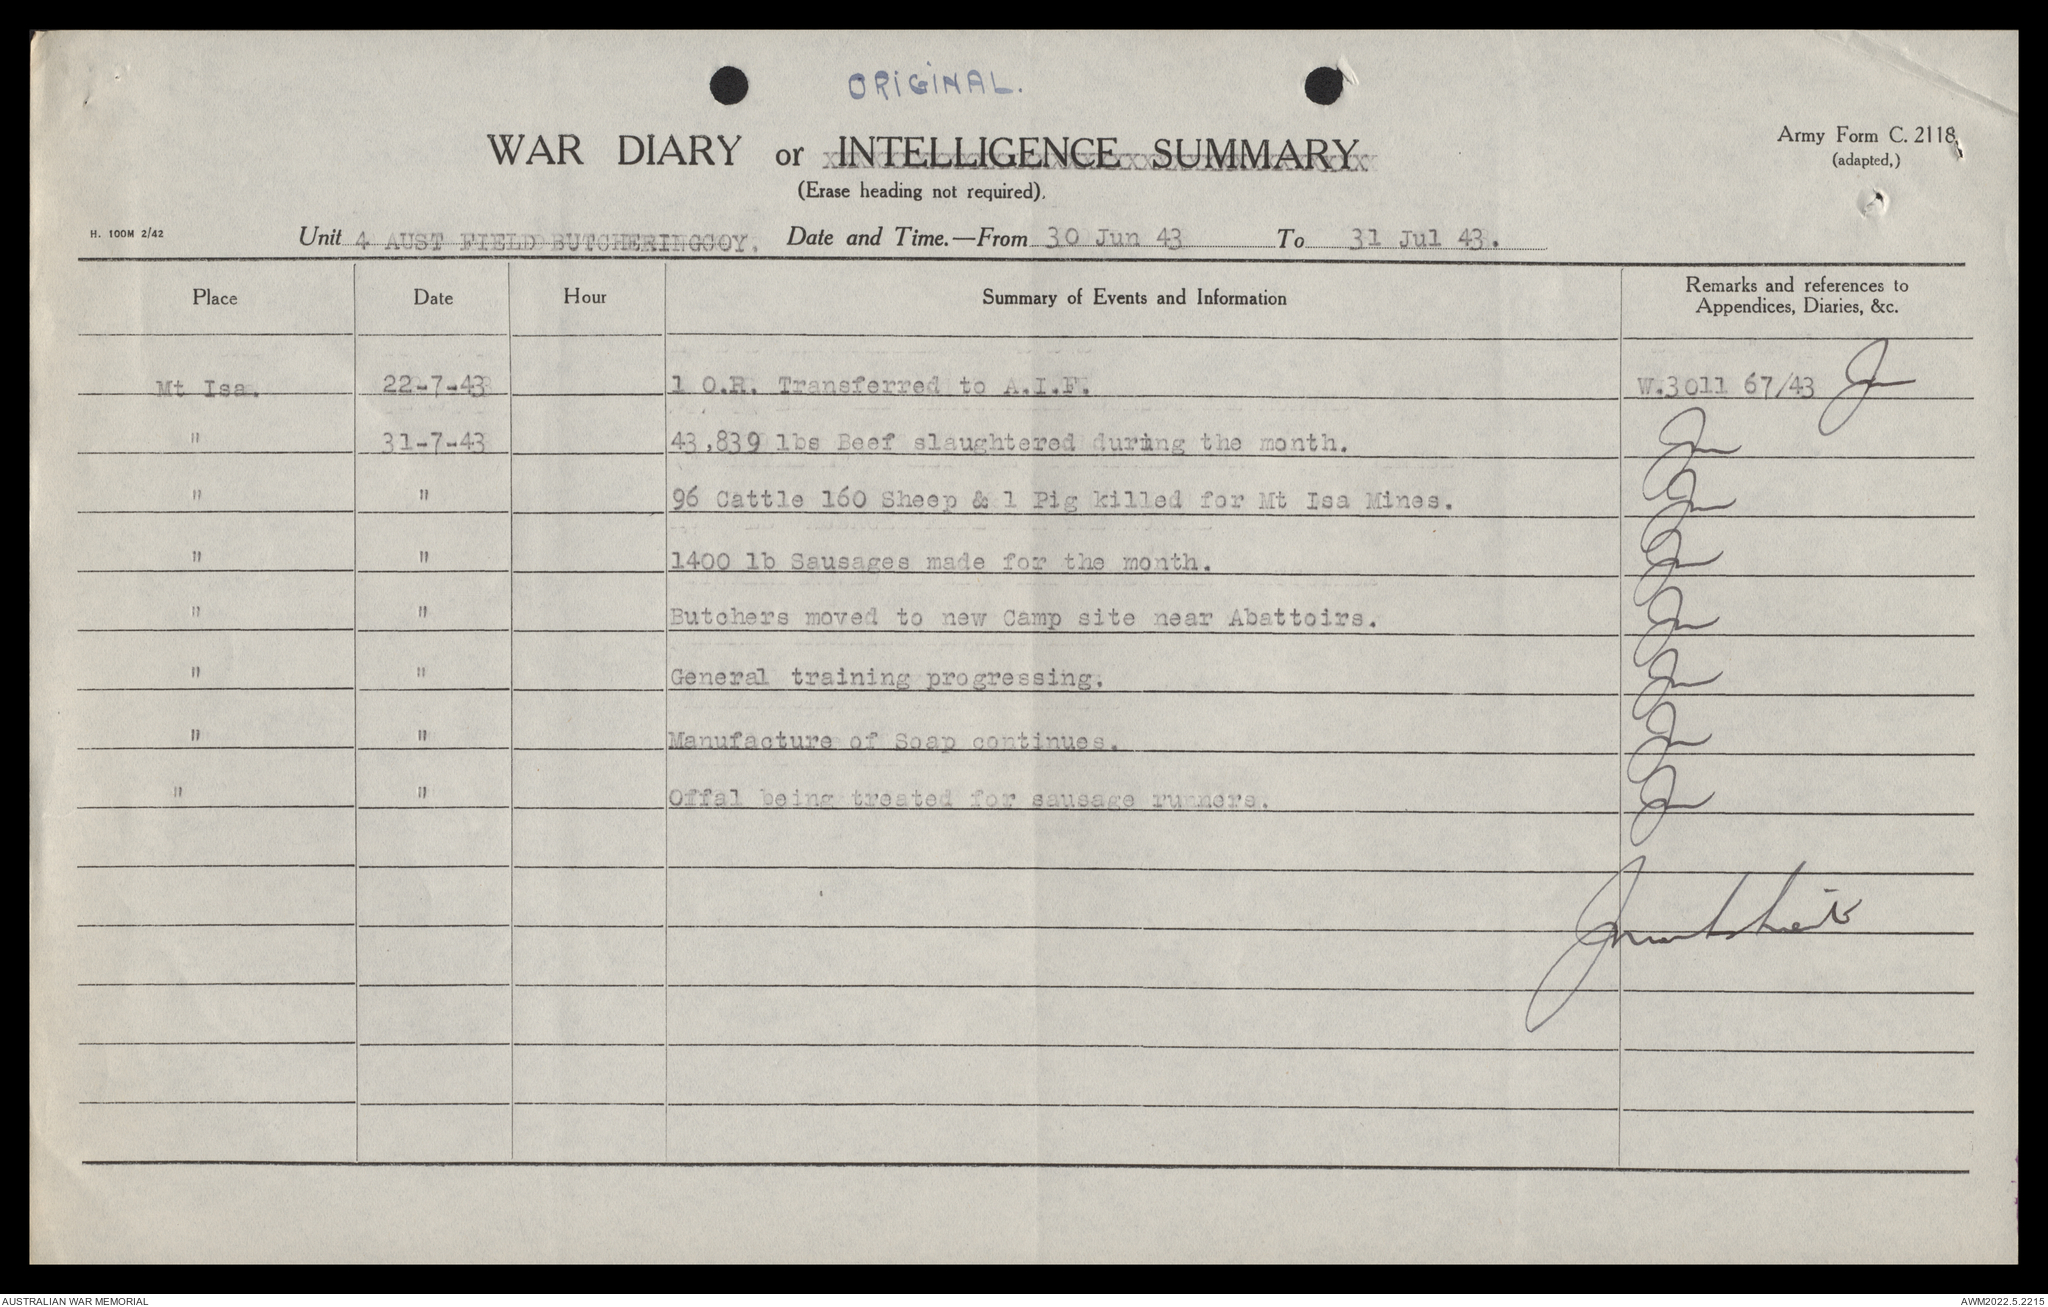 ORIGINAL.
WAR DIARY or INTELLIGENCE SUMMARY
Army Form C. 2118.
(adapted,)
(Erase heading not required).
H. 100M 2/42
Unit 4 AUST FIELD BUTCHERINGCOY. Date and Time.—From 30 Jun 43 To 31 Jul 43.
Place Date Hour Summary of Events and Information Remarks and references to
Appendices, Diaries, &c.
Mt Isa. 22-7-43 1 O.R. Transferred to A.I.F. W.3011 67/43
" 31-7-43 43,839 lbs Beef slaughtered during the month.
" " 96 Cattle 160 Sheep & 1 Pig killed for Mt Isa Mines.
" " 1400 lb Sausages made for the month.
" " Butchers moved to new Camp site near Abattoirs.
" " General training progressing.
" " Manufacture of Soap continues.
" " Offal being treated for sausage runners.
AUSTRALIAN WAR MEMORIAL
AWM2022.5.2215